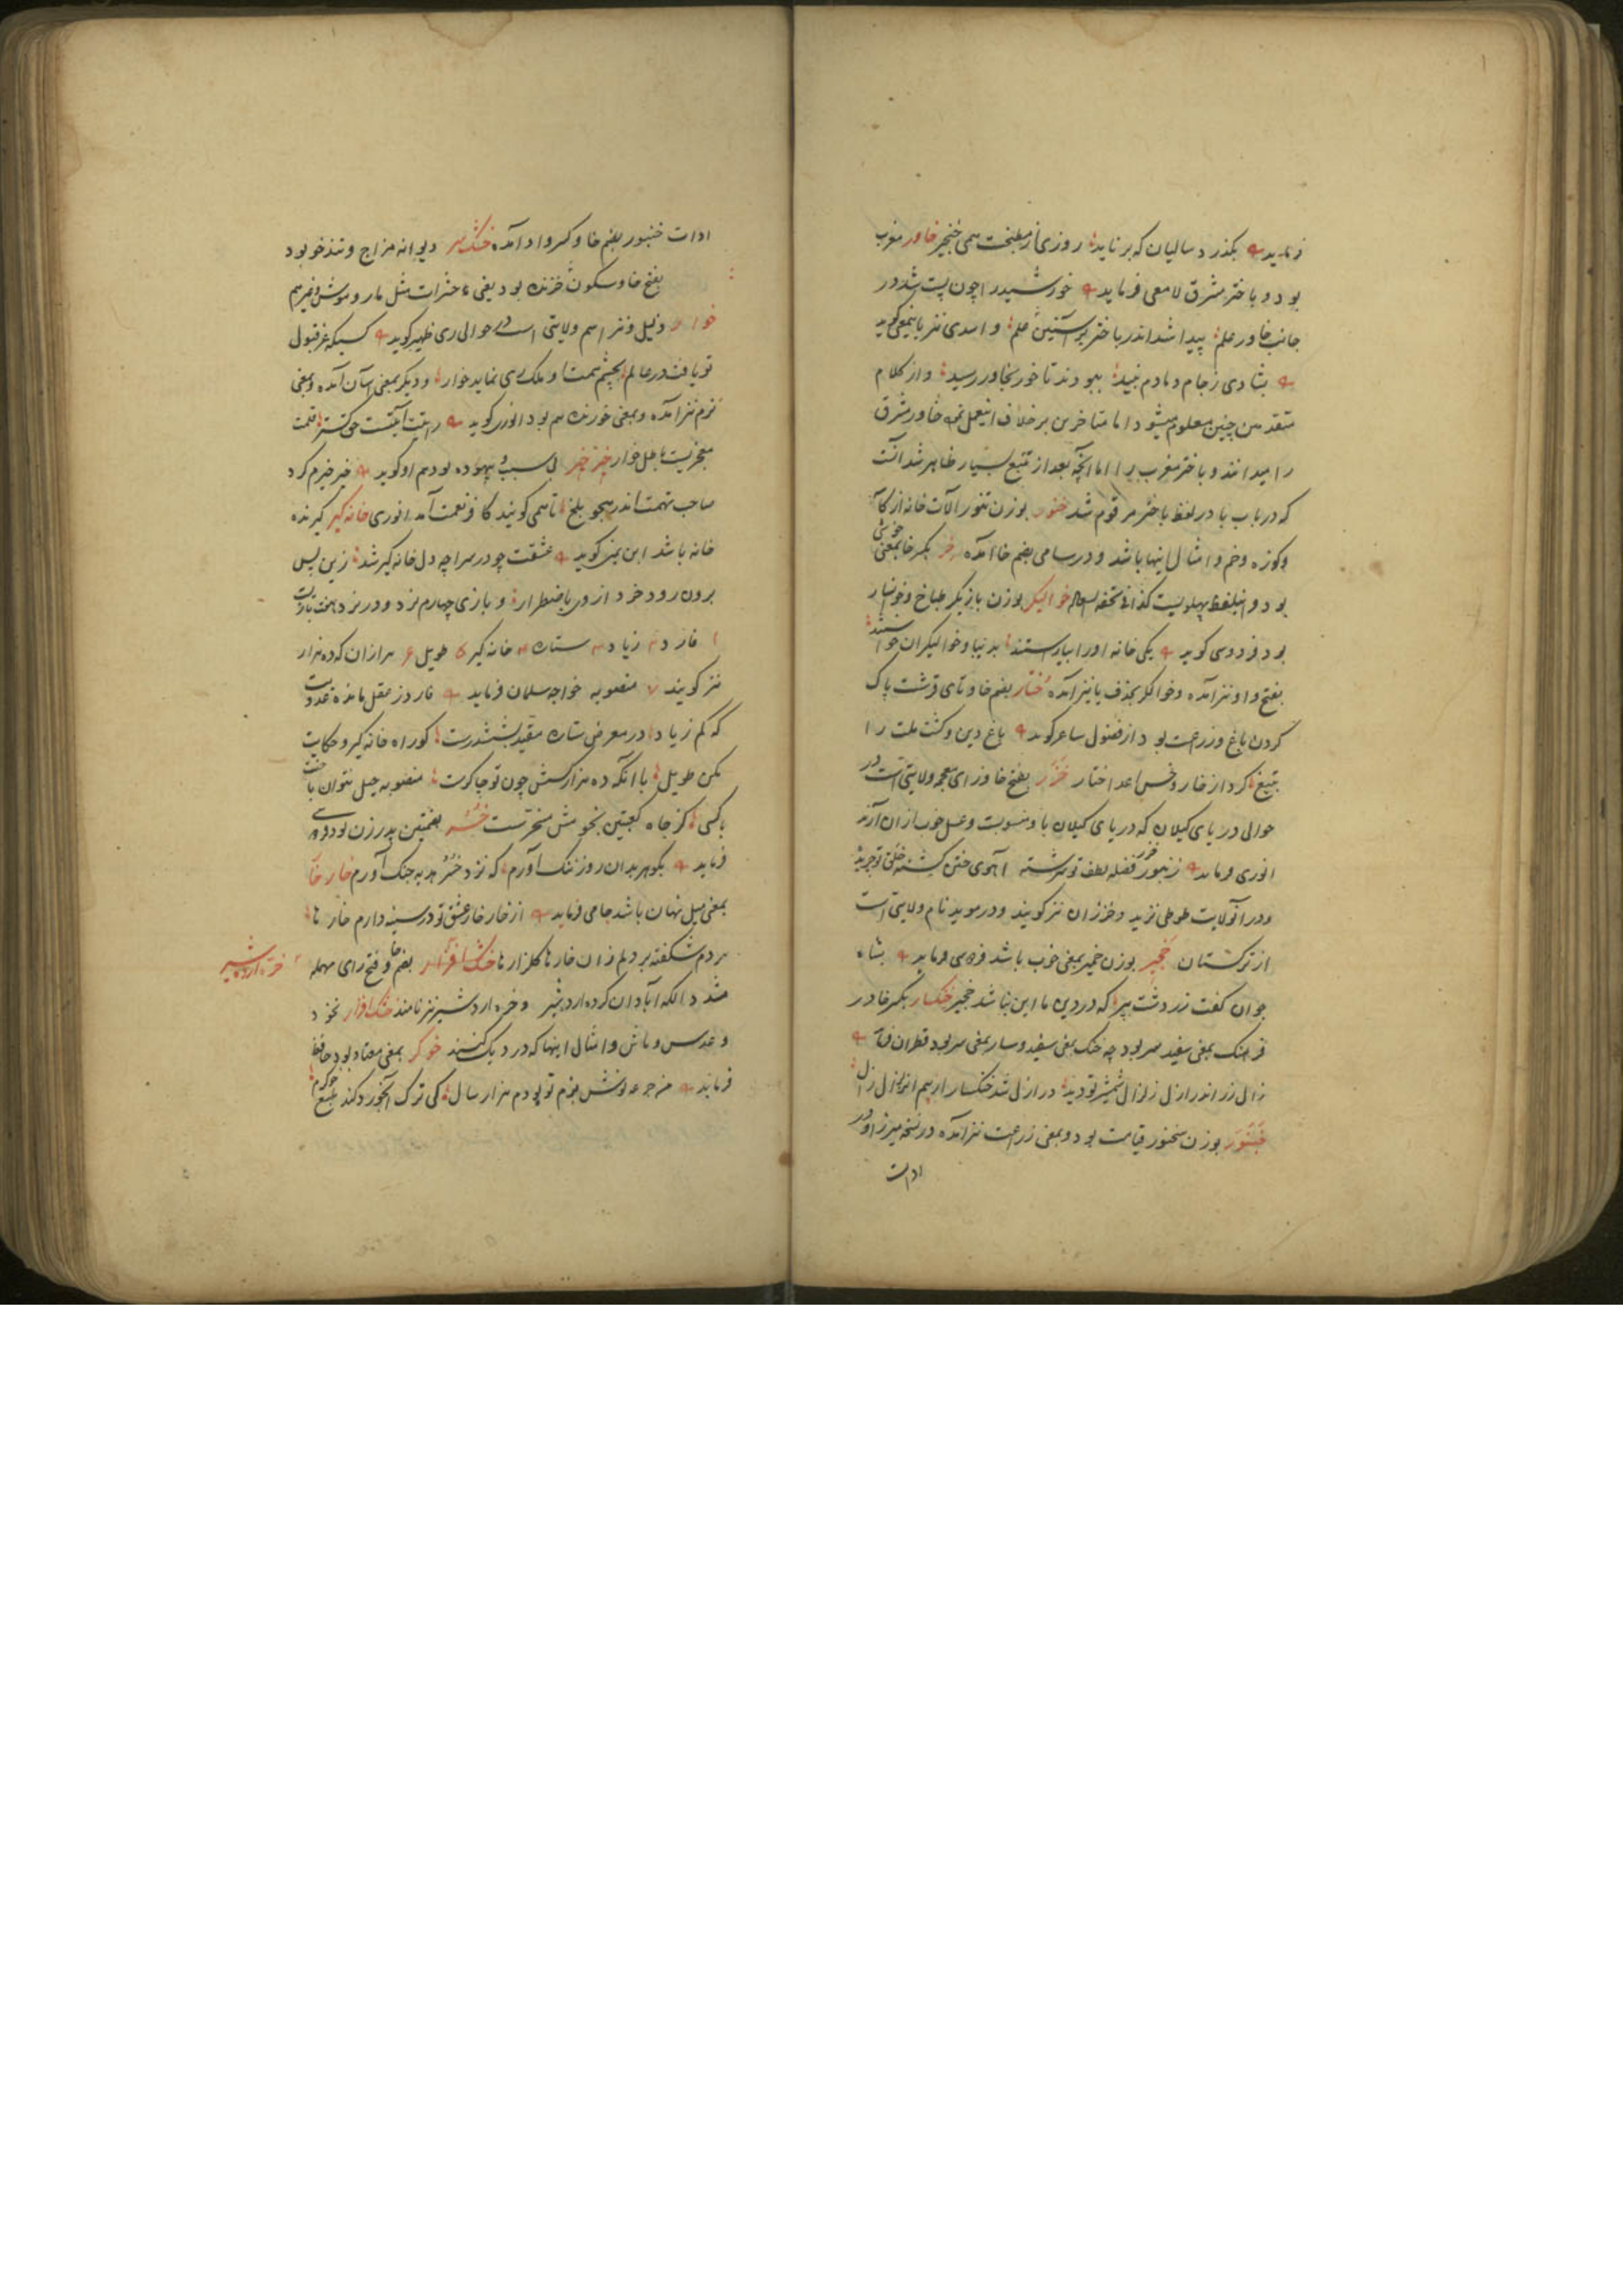 فرماید بگذرد سالیان که برناید روزی از مطبخت همی خنجیر خاور مغرب
بود و باختر مشرق لامعی فرماید خورشید را چون پست شد در
جانب خاور علم پیدا شد اندر باختر بر آستین علم و اسدی نیز باینمعنی گوید
بشادی ز جام دمادم نبید ببودند تا خور بخاور رسید و از کلام
متقدمین چنین معلوم میشود اما متاخرین برخلاف اینعمل نموده خاور مشرق
را میدانند و باختر مغرب را اما آنچه بعد از تتبع بسیار ظاهر شد آنست
که در باب با در لغظ باختر مرقوم شد خنور بوزن تنور آلات خانه از کاسه
وکوزه وخم و امثال اینها باشد و در سامی بضم خا آمده بکسر خا بمعنی خوشی
بود و اینلفظ پهلویست کذا فی تحفه خوالیگر بوزن بازیگر طباخ و خوانسالار
بود فردوسی گوید یکی خانه او را بیاراستند بدیبا و خوالیگران خواستند
بفتح واو نیز آمده وخوالگر بحذف یا نیز آمده ختار بضم خا و تای قرشت پاک
کردن باغ و زراعت بود از فضول شاعر گوید باغ دین و کشت ملت را
بتیغ کرد از خار و خس اعدا ختار خزر بفتح خا و زای معجمه ولایتی است در
حوالی دریای گیلان که دریای گیلان باو منسوبست وعسل خوب از ان آرند
انوری فرماید زنبور خزر فضله لطف تو سرشته آهوی ختن گشته خلق تو چریده
ودر آنولایت طوطی نزید وخزران نیز گویند ودر موید نام ولایتی است
از ترکستان خجیر بوزن خمیر بمعنی خوب باشد فردوسی فرماید بشاه
جوان گفت زردشت پیر که در دین ما این نباشد خجیر خنگسار بکسر خا در
فرهنگ بمعنی سفید سر بود چه خنگ بمعنی سفید و سار بمعنی سر بود قطران فرماید
زال زر اندر ازل زلزال شمشیر تو دید در ازل شد خنکسار از بیم آن زلزال زال
خنبور بوزن سخنور قیامت بود و بمعنی زراعت نیز آمده در نسخه میرزا ودر
ادات
ادات خنبور بضم خا وکسر واو آمده خشک سر دیوانه مزاج و تندخو بود
بفتح خا وسکون خزنده بود یعنی حشرات مثل مار و موش وغیرهم
خوار ذلیل و نیز اسم ولایتی است در حوالی ری ظهیر گوید کسیکه عز قبول
تو یافت در عالم بچشم همت او ملک ری نماید خوار و دیگر بمعنی آسان آمده وبمعنی
نرم نیز آمده وبمعنی خورنده هم بود انوری گوید رایتت آیتست حق گستر قلمت
معجزیست باطل خوار خیرخیر بی سبب و بیهوده بود هم او گوید خیرخیرم کرد
صاحب تهمت اندر هجو بلخ تا همی گویند کافر نعمت آمد انوری خانه گیر گیرنده
خانه باشد ابن یمین گوید عشقت چو در سراچه دل خانه گیر شد زین پس
برون رود خرد از وی باضطرار و بازی چهارم نرد و در نرد هفت بازیست
۱ فارد ۲ زیاد ۳ ستاره ۴ خانه گیر ۵ طویل ۶ هزاران که ده هزار
نیز گویند ۷ منصوبه خواجه سلمان فرماید فارد ز عقل مانده عدوت
که کم زیاد در معرض ستاره مقید بششدرست کو راه خانه گیر و حکایت
مکن طویل با آنکه ده هزار کسش چون تو چاکرست منصوبه حیل نتوان باخت
با کسی کز جاه کعبتین نحومش سخرتست خسر بضمتین پدر زن بود
فرماید بگوهر بدان روز ننگ آورم که نزد خسر هدیه جنگ آورم خار خار
بمعنی میل نهان باشد جامی فرماید از خار خار عشق تو در سینه دارم خارها
هر دم شکفته بر دلم زان خارها گلزارها بضم خا و فتح رای مهمله
مشدد الکه آبادان کرده اردشیر و خره اردشیر نیز نامند خشک افزار نخود
خره اردشیر
و عدس و ماش و امثال اینها که در دیگ کنند خوگر بمعنی معتاد بود حافظ
فرماید من جرعه نوش بزم تو بودم هزار سال کی ترک آبخورد کند طبع خوگرم